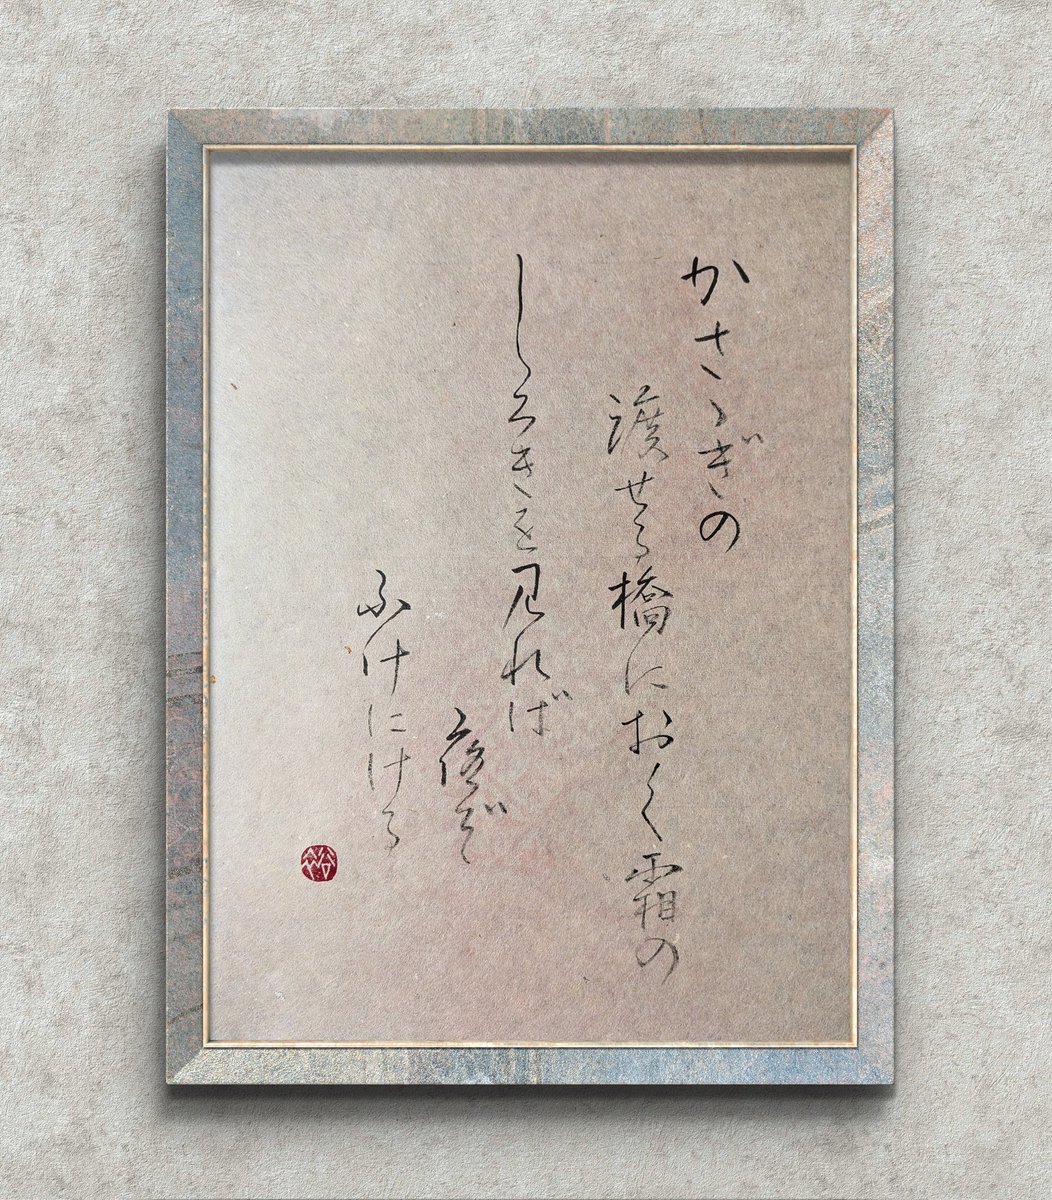 かさゝぎの
渡せる橋におく霜の
しろきを見れば
夜ぞ
ふけにける